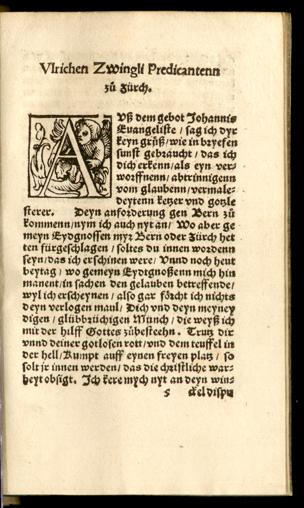 Vlrichen Zwingli Predicantenn
zů Zürch.
AVß dem gebot Johannis
Euangeliste / sag ich dyr
keyn grůß / wie in bryefen
sunst gebraucht / das ich
dich erkenn / als eyn ver-
worffnenn / abtrinnigenn
vom glaubenn / vermale-
deytenn ketzer vnd gotzle
sterer. Deyn anforderung gen Bern zů
kommenn / nym ich auch nyt an / Wo aber ge
meyn Eydgnossen myr Bern oder Zürch het
ten fürgeschlagen / soltes du innen wordenn
seyn / das ich erschinen were / Vnnd noch heut
beytag / wo gemeyn Eydtgnoßenn mich hin
manent / in sachen den gelauben betreffende /
wyl ich erscheynen / also gar förcht ich nichts
deyn verlogen maul / Dich vnd deyn meyney
digen / glübbrüchigen Münch / die weyß ich
mit der hilff Gottes zůbesteehn. Trutz dir
vnnd deiner gotlosen rott / vnd dem teuffel in
der hell / Kumpt auff eynen freyen platz / so
solt jr innen werden / das die christliche war-
heyt obsigt. Ich kere mych nyt an deyn win-
ckel dispu